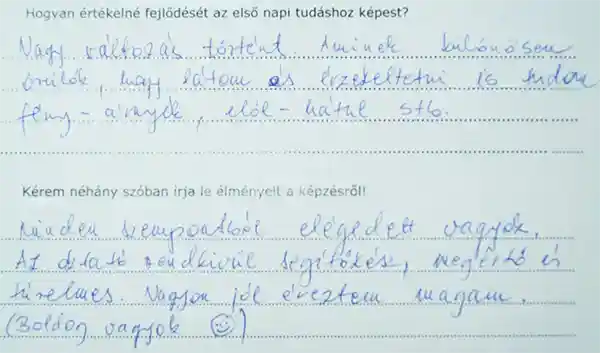 Hogyan értékelné fejlődését az első napi tudáshoz képest?
Nagy változás történt. Aminek különösen
örülök, hogy látom és érzékeltetni is tudom
fény - árnyék, elöl - hátul stb.
Kérem néhány szóban írja le élményeit a képzésről!
Minden szempontból elégedett vagyok.
Az oktató rendkívül segítőkész, megértő és
türelmes. Nagyon jól éreztem magam.
(Boldog vagyok ☺)